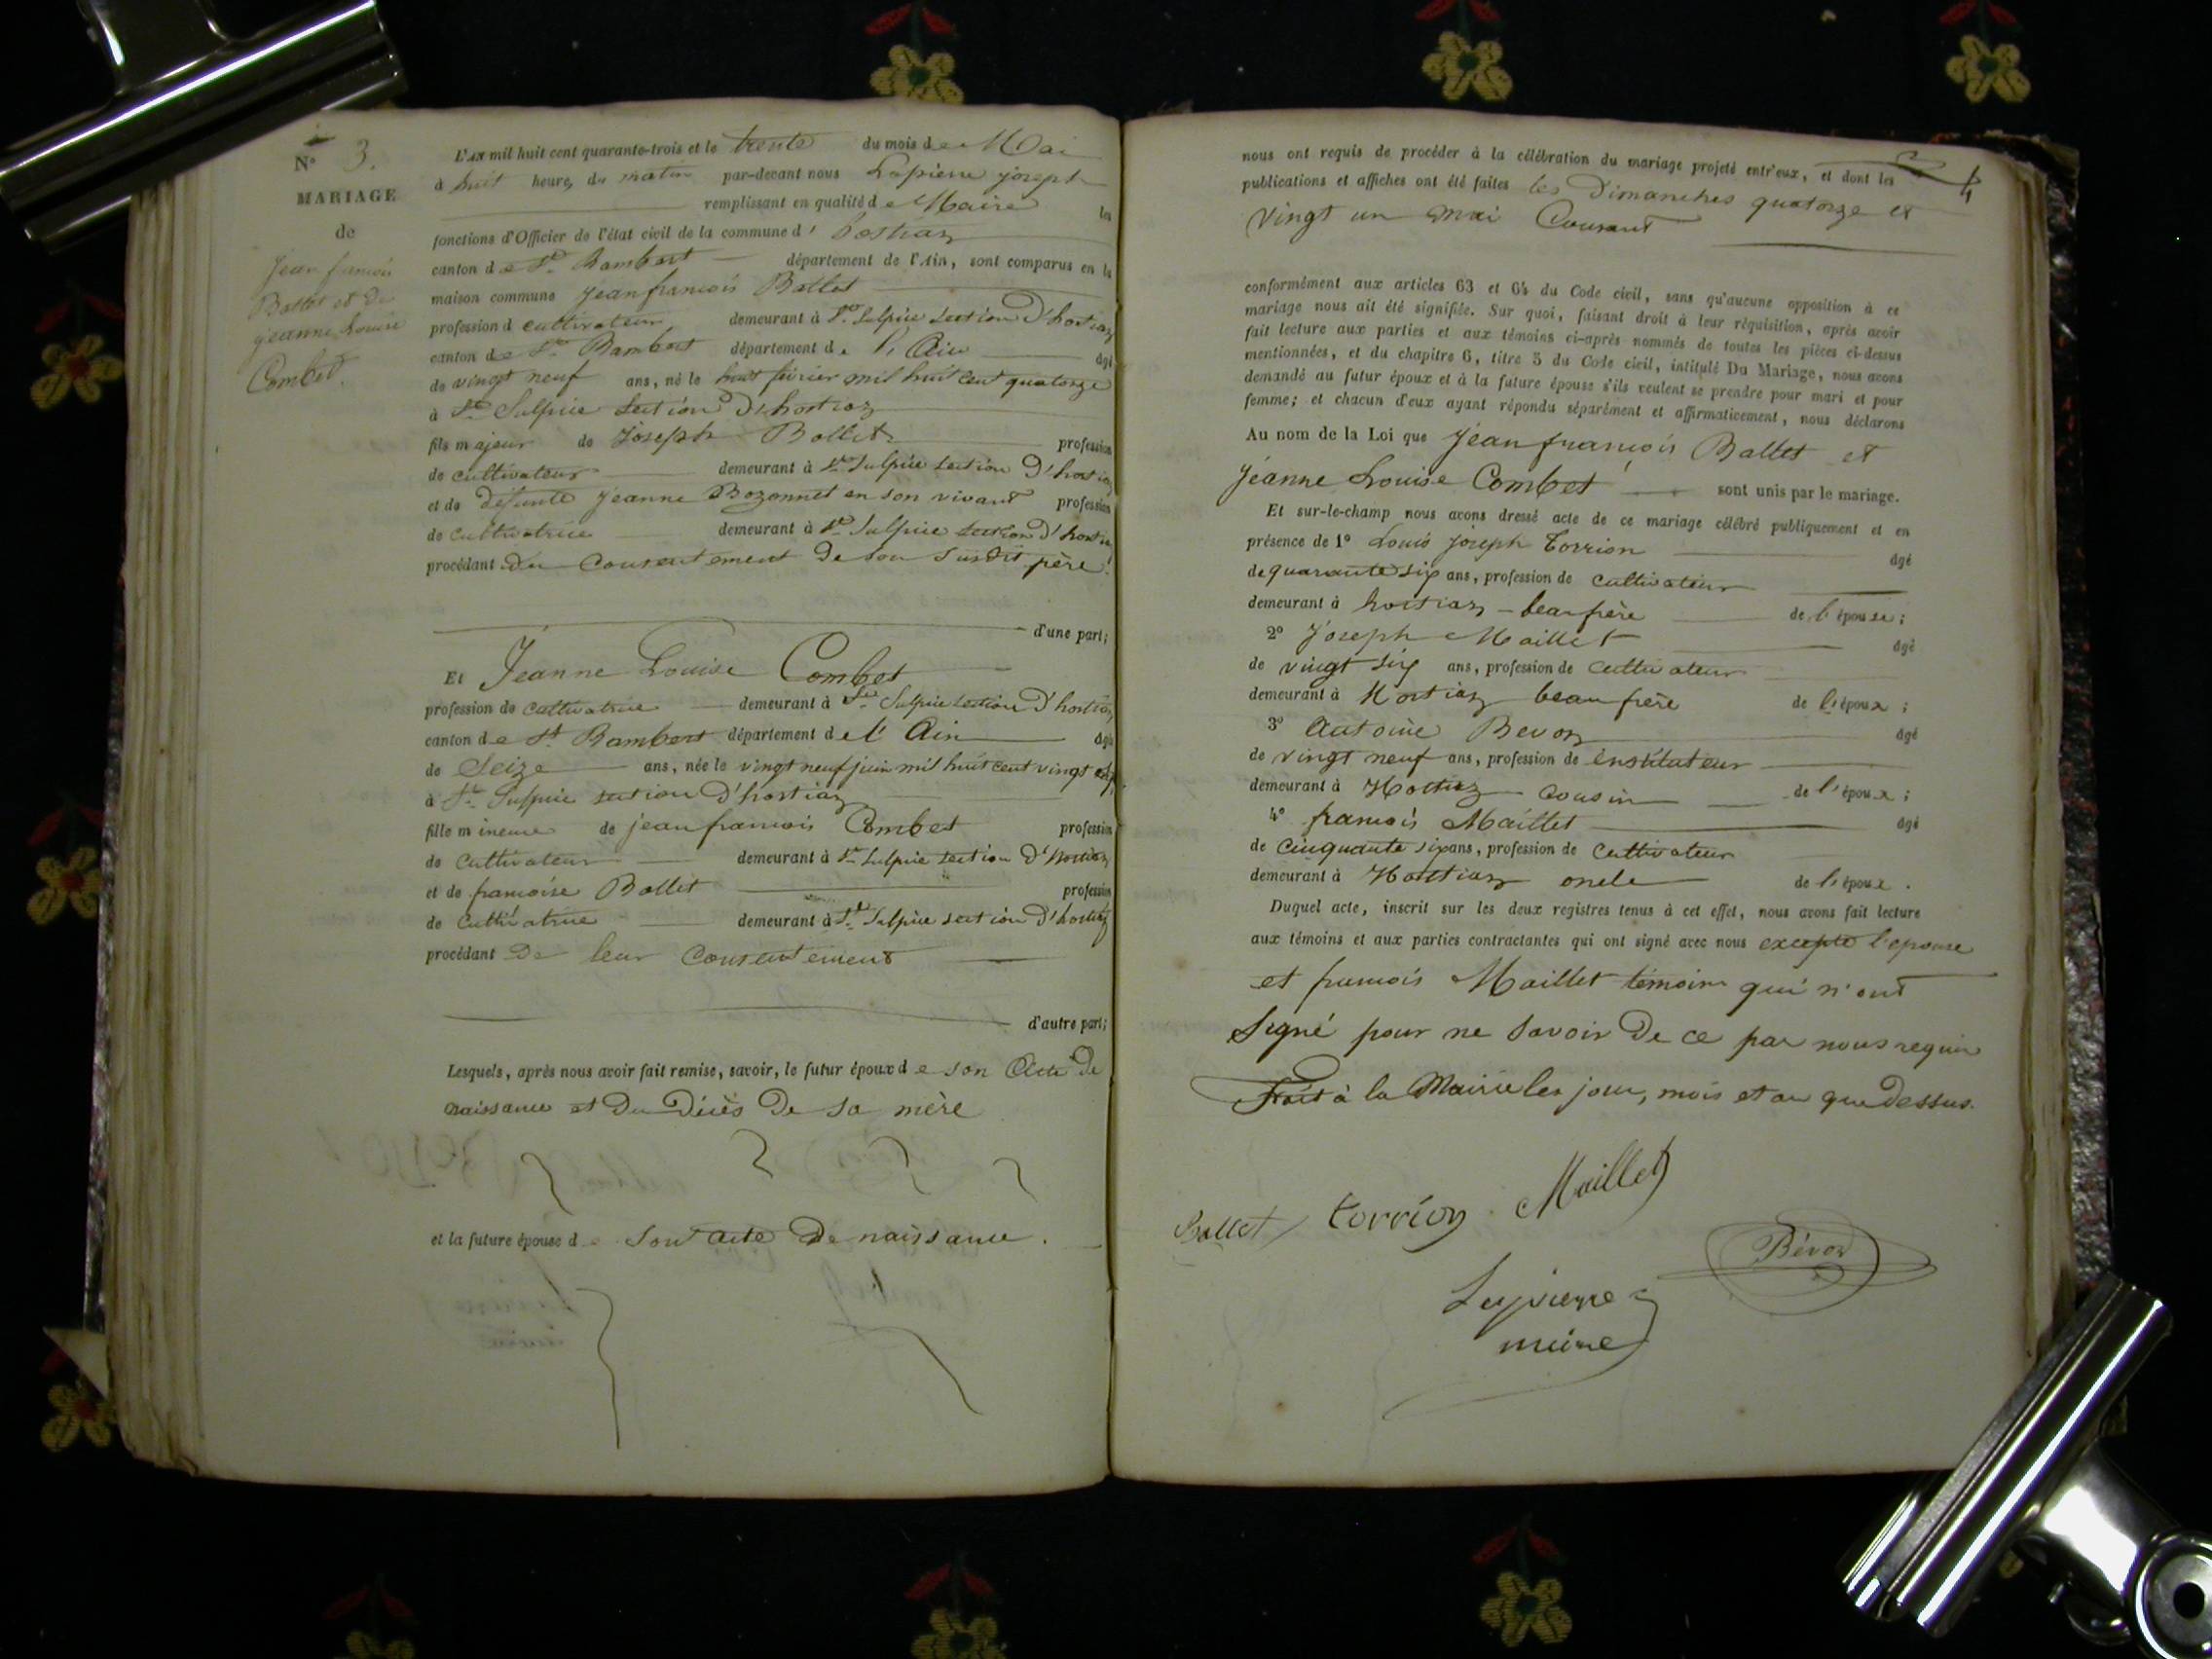 N° 3.
MARIAGE
de
Jean francois
Ballet et de
jeanne Louise
Combet.
L'AN mil huit cent quarante-trois et le trente du mois de Mai
à huit heures du matin par-devant nous Lapierre joseph
remplissant en qualité de Maire les
fonctions d'Officier de l'état civil de la commune d'hostiaz
canton de St. Rambert département de l'Ain, sont comparus en la
maison commune Jean francois Ballet
profession d cultivateur demeurant à St. Sulpice section d'hostiaz
canton de St. Rambert département de l'Ain âgé
de vingt neuf ans, né le huit février mil huit cent quatorze
à St. Sulpice section d'hostiaz
fils majeur de Joseph Ballet profession
de cultivateur demeurant à St. Sulpice section d'hostiaz
et de défunte Jeanne Bozonnet en son vivant profession
de cultivatrice demeurant à St. Sulpice section d'hostiaz
procédant du consentement de son susdit père.
d'une part;
Et Jeanne Louise Combet
profession de cultivatrice demeurant à St. Sulpice section d'hostiaz
canton de St. Rambert département de l'Ain âgée
de Seize ans, née le vingt neuf juin mil huit cent vingt
à St. Sulpice section d'hostiaz
fille mineure de jean francois Combet profession
de cultivateur demeurant à St. Sulpice section d'hostiaz
et de francoise Ballet profession
de cultivatrice demeurant à St. Sulpice section d'hostiaz
procédant de leur consentement
d'autre part;
Lesquels, après nous avoir fait remise, savoir, le futur époux de son Acte de
naissance et du décès de sa mère
et la future épouse de son acte de naissance.
4
nous ont requis de procéder à la célébration du mariage projeté entr'eux, et dont les
publications et affiches ont été faites les Dimanches quatorze et
vingt un mai Courant
conformément aux articles 63 et 64 du Code civil, sans qu'aucune opposition à ce
mariage nous ait été signifiée. Sur quoi, faisant droit à leur réquisition, après avoir
fait lecture aux parties et aux témoins ci-après nommés de toutes les pièces ci-dessus
mentionnées, et du chapitre 6, titre 5 du Code civil, intitulé Du Mariage, nous avons
demandé au futur époux et à la future épouse s'ils veulent se prendre pour mari et pour
femme; et chacun d'eux ayant répondu séparément et affirmativement, nous déclarons
Au nom de la Loi que Jean francois Ballet et
Jeanne Louise Combet sont unis par le mariage.
Et sur-le-champ nous avons dressé acte de ce mariage célébré publiquement et en
présence de 1° Louis joseph Torrion âgé
de quarante six ans, profession de cultivateur
demeurant à hostiaz beaufrère de l'épouse;
2° Joseph Maillet âgé
de vingt six ans, profession de cultivateur
demeurant à Hostiaz beaufrère de l'époux;
3° Antoine Bevoz âgé
de vingt neuf ans, profession de instituteur
demeurant à Hostiaz cousin de l'époux;
4° francois Maillet âgé
de cinquante six ans, profession de cultivateur
demeurant à Hostiaz oncle de l'époux.
Duquel acte, inscrit sur les deux registres tenus à cet effet, nous avons fait lecture
aux témoins et aux parties contractantes qui ont signé avec nous excepté l'epouse
et francois Maillet témoin qui n'ont
Signé pour ne Savoir De ce par nous requis
Fait à la Mairie les jour, mois et an que dessus.
Ballet torrion Maillet
Bévoz
Lapierre
maire